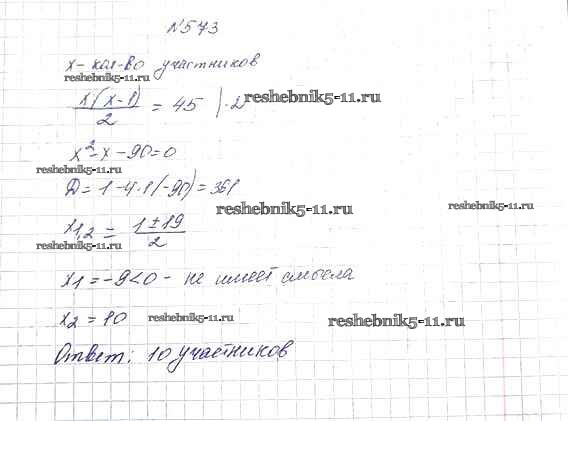 №573
x - кол-во участников
reshebnik5-11.ru
x(x-1)/2 = 45 |·2
reshebnik5-11.ru
x²-x-90=0
reshebnik5-11.ru
D=1-4·1(-90)=361
reshebnik5-11.ru
reshebnik5-11.ru
x1,2 = 1±19/2
reshebnik5-11.ru
x1=-9<0 - не имеет смысла
x2=10
reshebnik5-11.ru
reshebnik5-11.ru
Ответ: 10 участников